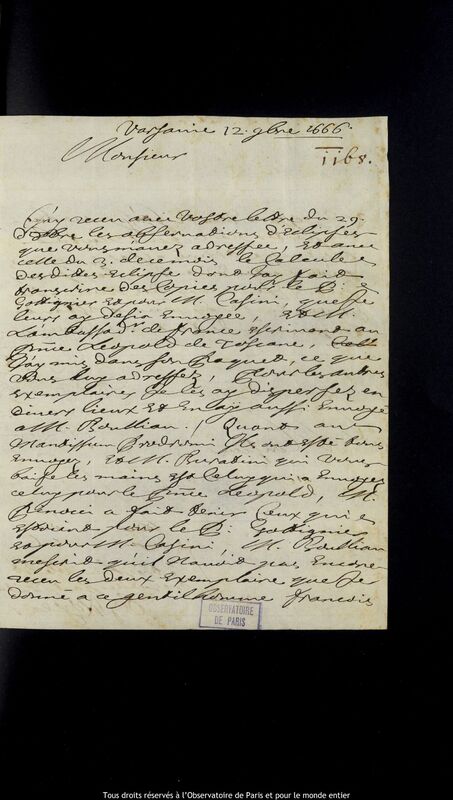 Varsavie 12. 9bre 1666.
Monsieur
1168.
J'ay receu avec Vostre lettre du 29.
les observations d'Eclypses
que vous m'avez adressée, Et avec
celle du 2. de ce mois le Calcule
Desdittes Eclipse dont J'ay fait
transcrire Des Copies pour le P.
Gottignier et pour M. Casini, que Je
leurs ay desia Envoyée, Et M.
L'ambassadr. de france Escrivant au
Prince Leopold de Toscane,
J'ay mis dans son Paquet, ce que
vous luy adressez. Pour les autres
Exemplaires Je les ay dispersez en
divers lieux Et En ay aussi Envoyé
a M. Boullian. Quant aux
Mantissum Prodromi Ils ont esté tous
Envoyez, Et M. Buratini qui vous
baise les mains est Celuy qui a Envoyez
celuy pour le Prince Leopold, M.
a fait tenir Ceux qui
Estoient pour le P. Gottignie
Et pour M. Casini, M. Boullian
m'escrit qu'il n'avoit pas Encore
receu les Deux Exemplaire que J'ay
donné a ce gentilhomme francois
OBSERVATOIRE
DE PARIS
Tous droits réservés à l'Observatoire de Paris et pour le monde entier